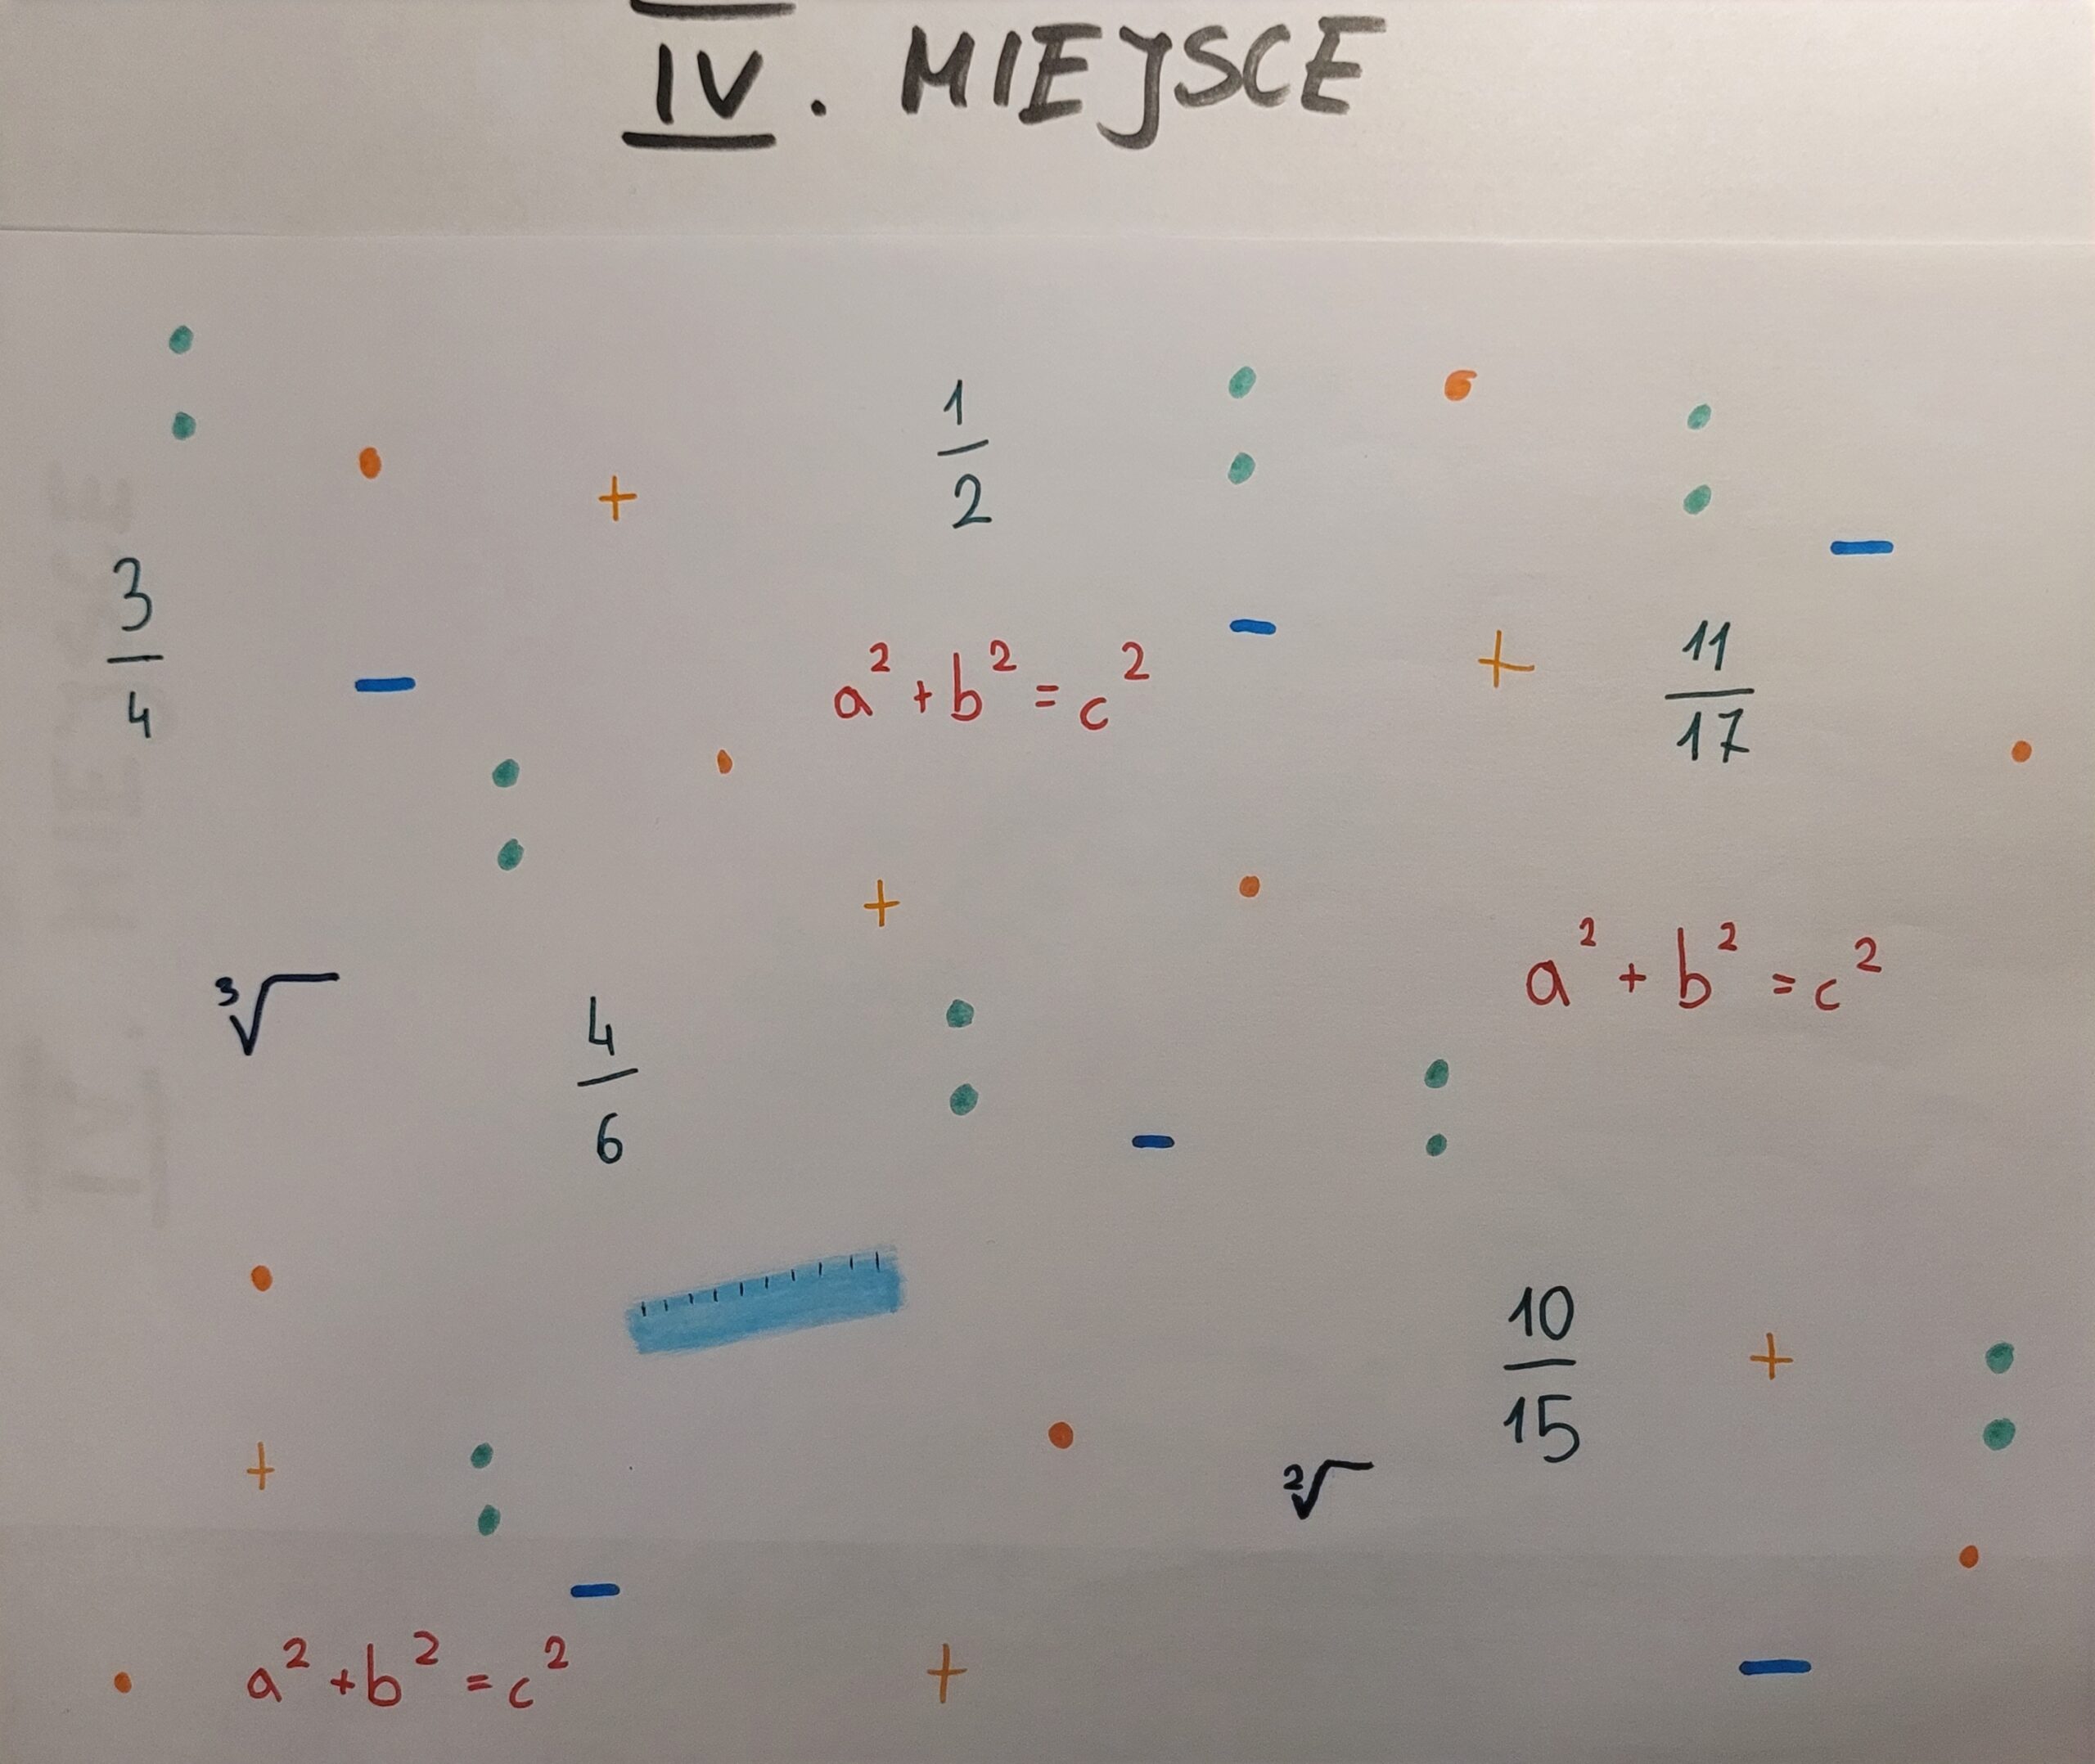 IV. MIEJSCE
: • + 1/2 : • :
3/4 − a² + b² = c² − + 11/17 −
: • •
+ •
∛ 4/6 : − : a² + b² = c²
• 10/15 + :
+ : • ²√
− •
• a² + b² = c² + −